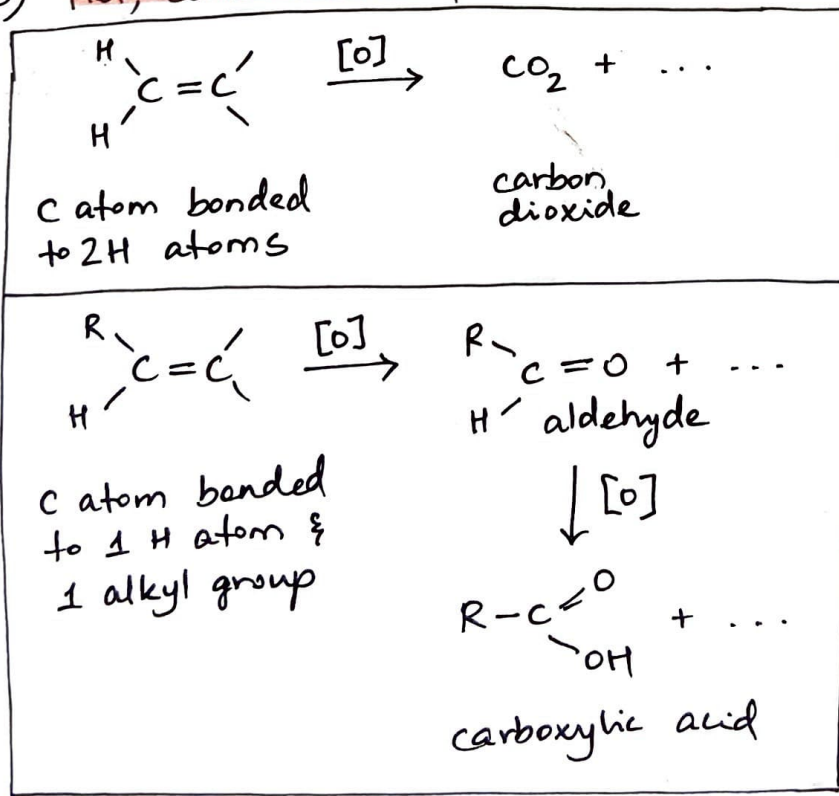 H
C = C
H
[O]
CO₂ + ...
C atom bonded
to 2H atoms
carbon
dioxide
R
C = C
H
[O]
R
C = O + ...
H
aldehyde
C atom bonded
to 1 H atom &
1 alkyl group
[O]
R - C
O
OH
+ ...
carboxylic acid